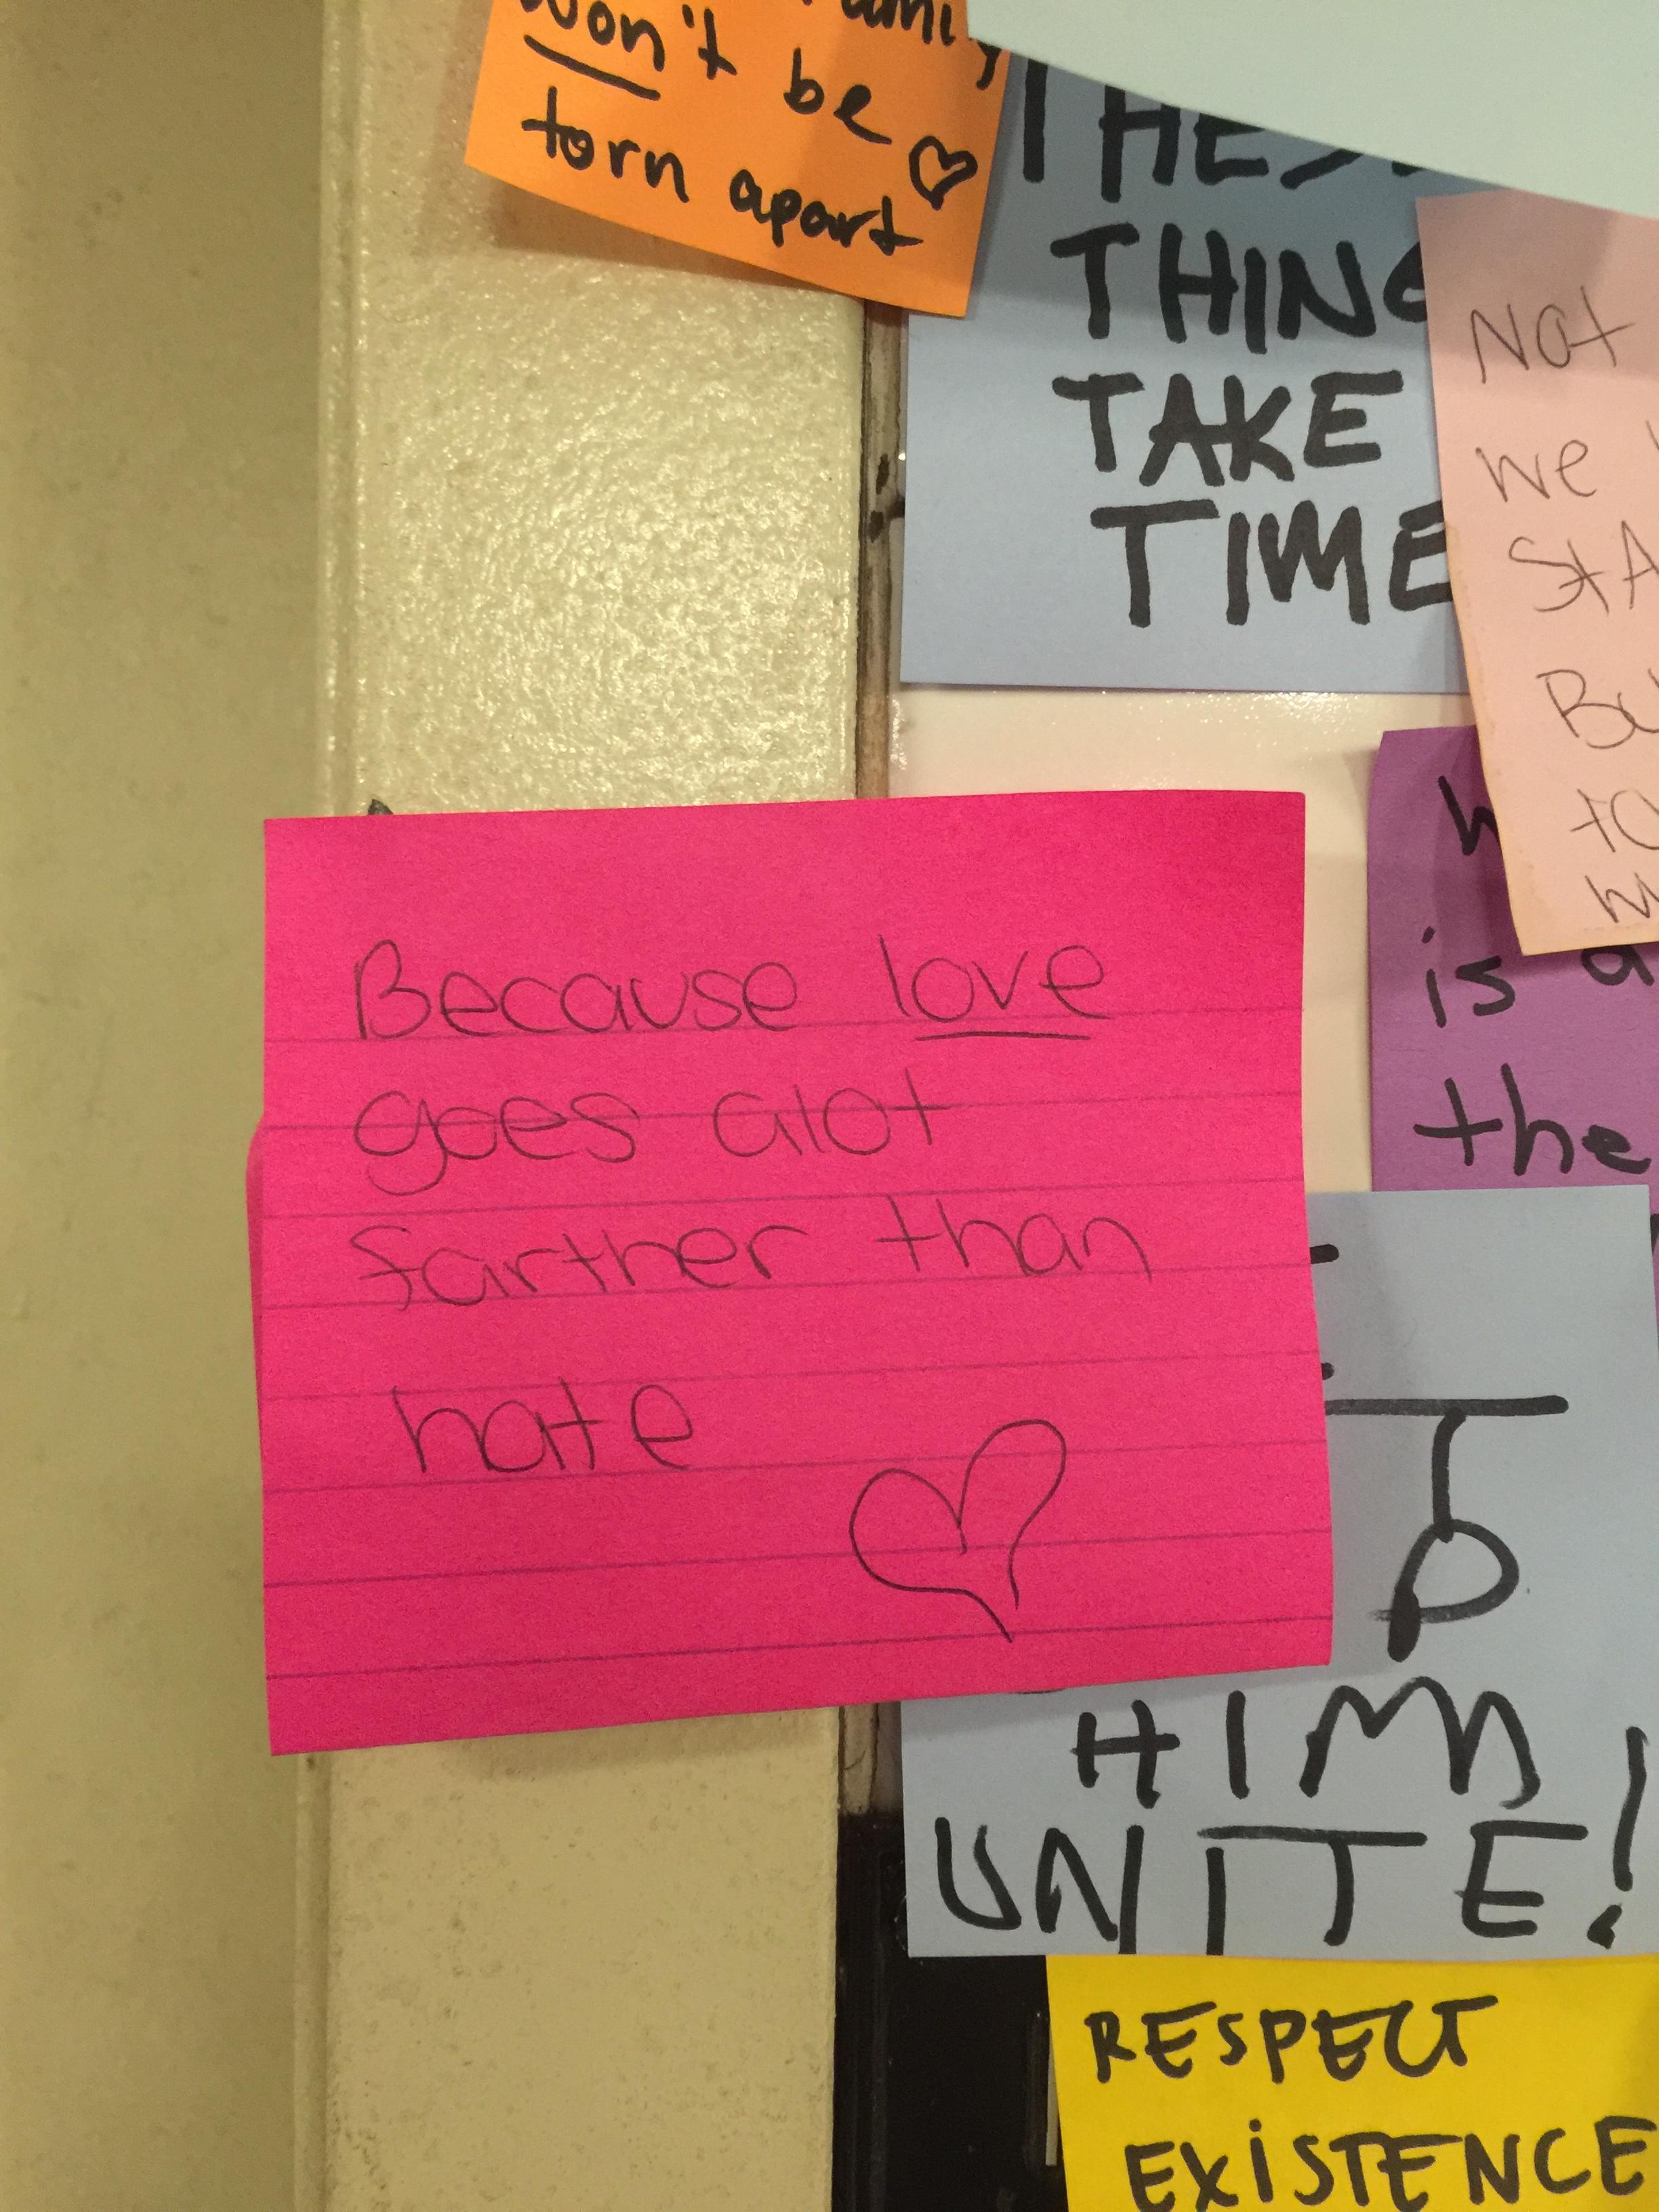 won't be
torn apart
THESE
THING
TAKE
TIME
Not
we
is a
the
Because love
goes alot
farther than
hate
HIM
UNITE!
RESPECT
EXISTENCE